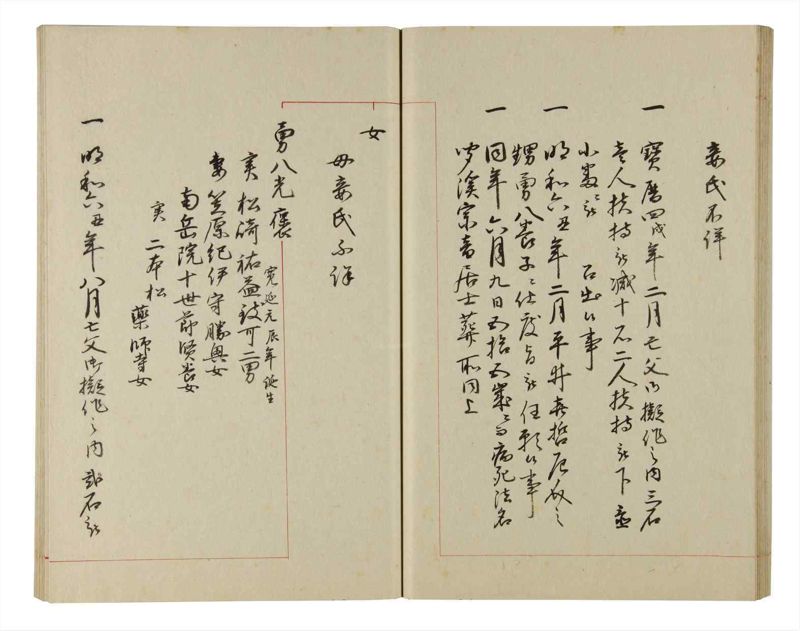 妻氏不詳
一 寶暦四戌年二月亡父御擬作之内三石
壱人扶持被減十石二人扶持被下
小 被 召出候事
一 明和六丑年二月平井
甥勇八養子ニ仕度旨被任願候事
一 同年六月九日五拾五歳ニ而病死法名
溪宗音居士葬所同上
女
母妾氏不詳
勇八光
寛延元辰年誕生
実 松崎祐益 二男
妻 笠原紀伊守勝興女
南岳院十世 賢養女
実 二本松
薬師寺女
一 明和六丑年八月亡父御擬作之内 石被